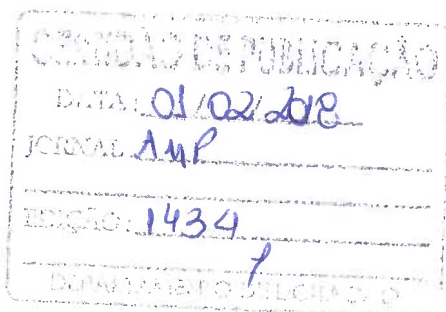 CERTIDÃO DE PUBLICAÇÃO
DATA: 01/02/2018
JORNAL: AMP
EDIÇÃO: 1434
DEPARTAMENTO DE LICITAÇÃO